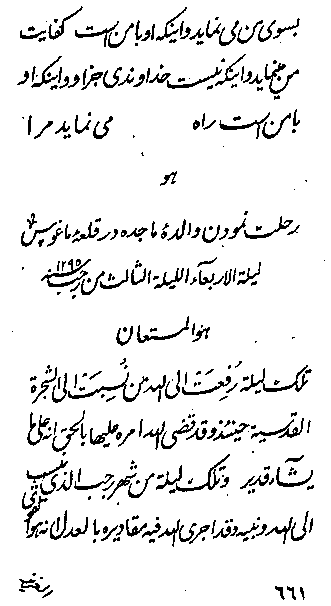 بسوی من می نماید و اینکه او با من است کفایت
من مینماید و اینکه نیست خداوندی جز او و اینکه او
با من است راه می نماید مرا
هو
رحلت نمودن والدهٔ ماجده در قلعهٔ ماغوسی
لیلة الاربعآء اللیلة الثالث من رجب ۱۲۹۵
هو المستعان
تلک لیلة رُفِعَت الی الله من نُسِبَت الی الشجرة
القدسیة حینئذ و قد قضی الله امره علیها بالحق انه علی ما
یشآء قدیر و تلک لیلة من شهر رجب الذی ینسب
الی الله و نبیه و قد اجری الله فیه مقادیره بالعدل انه هو
۶۶۱